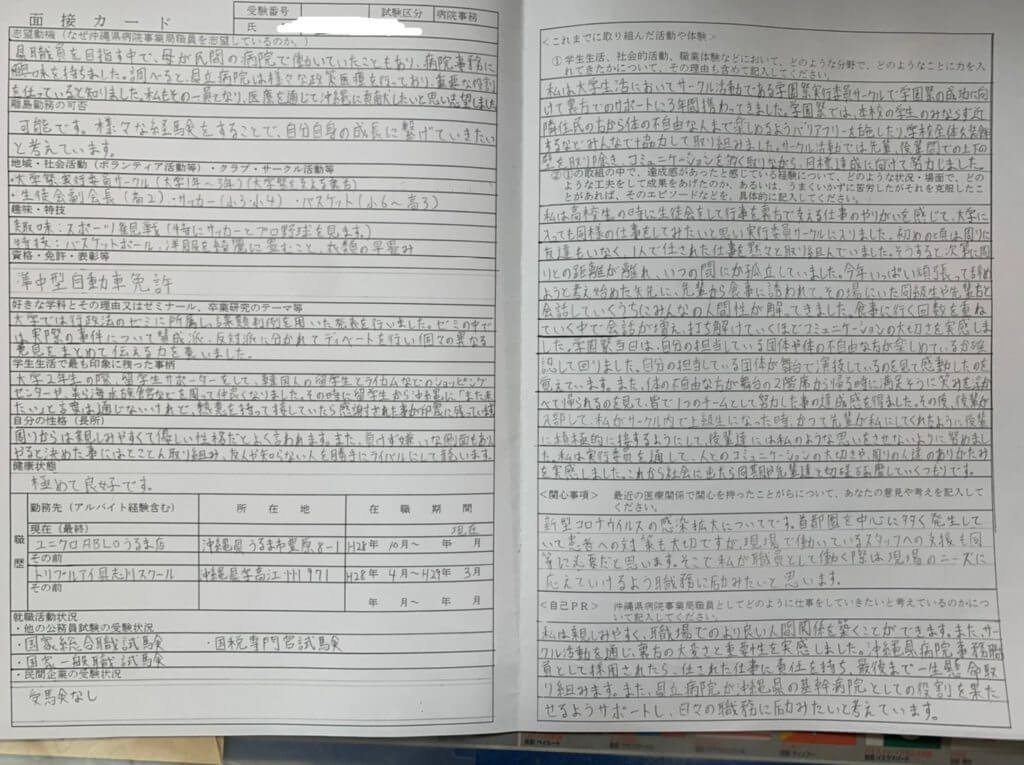 面接カード
受験番号
試験区分
病院事務
氏
志望動機（なぜ沖縄県病院事業局職員を志望しているのか。）
県職員を目指す中で、母が民間の病院で働いていたこともあり、病院事務に
興味を持ちました。調べると、県立病院は様々な政策医療を行っており、重要な役割
を任っていると知りました。私もその一員となり、医療を通じて沖縄に貢献したいと思い志望しました
離島勤務の可否
可能です。様々な経験をすることで、自分自身の成長に繋げていきたい
と考えています。
地域・社会活動（ボランティア活動等）・クラブ・サークル活動等
・大学祭実行委員サークル（大学1年～3年）（大学祭を支える裏方）
・生徒会副会長（高2）・サッカー（小3・小4）・バスケット（小6～高3）
趣味・特技
趣味：スポーツ観戦（特にサッカーとプロ野球を見ます。）
特技：バスケットボール、洋服を綺麗に畳むこと、衣類の早畳み
資格・免許・表彰等
準中型自動車免許
好きな学科とその理由又はゼミナール、卒業研究のテーマ等
大学では行政法のゼミに所属し、課題判例を用いた発表を行いました。ゼミの中で
は実際の事件について賛成派・反対派に分かれてディベートを行い個々の異なる
意見をまとめて伝える力を養いました。
学生生活で最も印象に残った事柄
大学2年生の際、留学生サポーターをして、韓国人の留学生とライカムなどのショッピング
センターや、美ら海水族館などを周って仲良くなりました。その時に留学生から沖縄に「また来
たい」と言葉は通じないけれど、熱意を持って接していたら感謝された事が印象に残っています
自分の性格（長所）
周りからは親しみやすくて優しい性格だとよく言われます。また、負けず嫌いな側面もあり
やると決めた事にはとことん取り組み、友人や知らない人を勝手にライバルにして競います。
健康状態
極めて良好です。
職歴
勤務先（アルバイト経験含む）
所在地
在職期間
現在（最終）
ユニクロABLOうるま店
沖縄県うるま市豊原8-1
H28年 10月～ 年 月
現在
その前
トリプルアイ具志川スクール
沖縄県字高江洲971
H28年 4月～H29年 3月
その前
年 月～ 年 月
就職活動状況
・他の公務員試験の受験状況
・国家総合職試験 ・国税専門官試験
・国家一般職試験
・民間企業の受験状況
受験なし
＜これまでに取り組んだ活動や体験＞
①学生生活、社会的活動、職業体験などにおいて、どのような分野で、どのようなことに力を入
れてきたかについて、その理由も含めて記入してください。
私は大学生活においてサークル活動である学園祭実行委員サークルで学園祭の成功に向
けて裏方でのサポートに3年間携わってきました。学園祭では、本校の学生のみならず近
隣住民の方から体の不自由な人まで楽しめるようバリアフリーを施したり、学校全体を装飾
するなどみんなで協力して取り組みました。サークル活動では先輩、後輩間での上下の
壁を取り除き、コミュニケーションを多く取りながら、目標達成に向けて努力しました。
②①の取組の中で、達成感があったと感じている経験について、どのような状況・場面で、ど
のような工夫をして成果をあげたのか、あるいは、うまくいかずに苦労したがそれを克服したこ
とがあれば、そのエピソードなどを、具体的に記入してください。
私は高校生の時に生徒会をして行事を裏方で支える仕事のやりがいを感じて、大学に
入っても同様の仕事をしてみたいと思い実行委員サークルに入りました。初めの頃は周りに
友達もいなく、1人で任された仕事を黙々と取り組んでいました。そうすると次第に周
りとの距離が離れ、いつの間にか孤立していました。今年いっぱい頑張って辞め
ようと考え始めた矢先に、先輩から食事に誘われて、その場にいた同級生や先輩方と
会話していくうちにみんなの人間性が解ってきました。食事に行く回数を重ね
ていく中で会話が増え、打ち解けていくほどコミュニケーションの大切さを実感しま
した。学園祭当日は、自分の担当している団体や体の不自由な方が楽しめているか確
認して回りました。自分の担当している団体が舞台で演技しているのを見て感動したのを
覚えています。また、体の不自由な方が舞台の2階席から帰る時に満足そうに笑みを浮か
べて帰られるのを見て、皆で1つのチームとして努力した事の達成感を得ました。その後、後輩が
入部して、私がサークル内で上級生になった時、かつて先輩が私にしてくれたように後輩
に積極的に接するようにして、後輩達には私のような思いをさせないように努めまし
た。私は実行委員を通して、人とのコミュニケーションの大切さや、周りの人達のありがたみ
を実感しました。これから社会に出たら同期や先輩達と切磋琢磨していくつもりです。
＜関心事項＞ 最近の医療関係で関心を持ったことがらについて、あなたの意見や考えを記入して
ください。
新型コロナウイルスの感染拡大についてです。首都圏を中心に多く発生して
いて患者への対策も大切ですが、現場で働いているスタッフへの支援も同
等に必要だと思います。そこで私が職員として働く際は現場のニーズに
応えていけるよう職務に励みたいと思います。
＜自己PR＞ 沖縄県病院事業局職員としてどのように仕事をしていきたいと考えているのかにつ
いて記入してください。
私は親しみやすく、職場でのより良い人間関係を築くことができます。また、サー
クル活動を通じ、裏方の大変さと重要性を実感しました。沖縄県病院事務職
員として採用されたら、任された仕事に責任を持ち、最後まで一生懸命取
り組みます。また、県立病院が沖縄県の基幹病院としての役割を果た
せるようサポートし、日々の職務に励みたいと考えています。